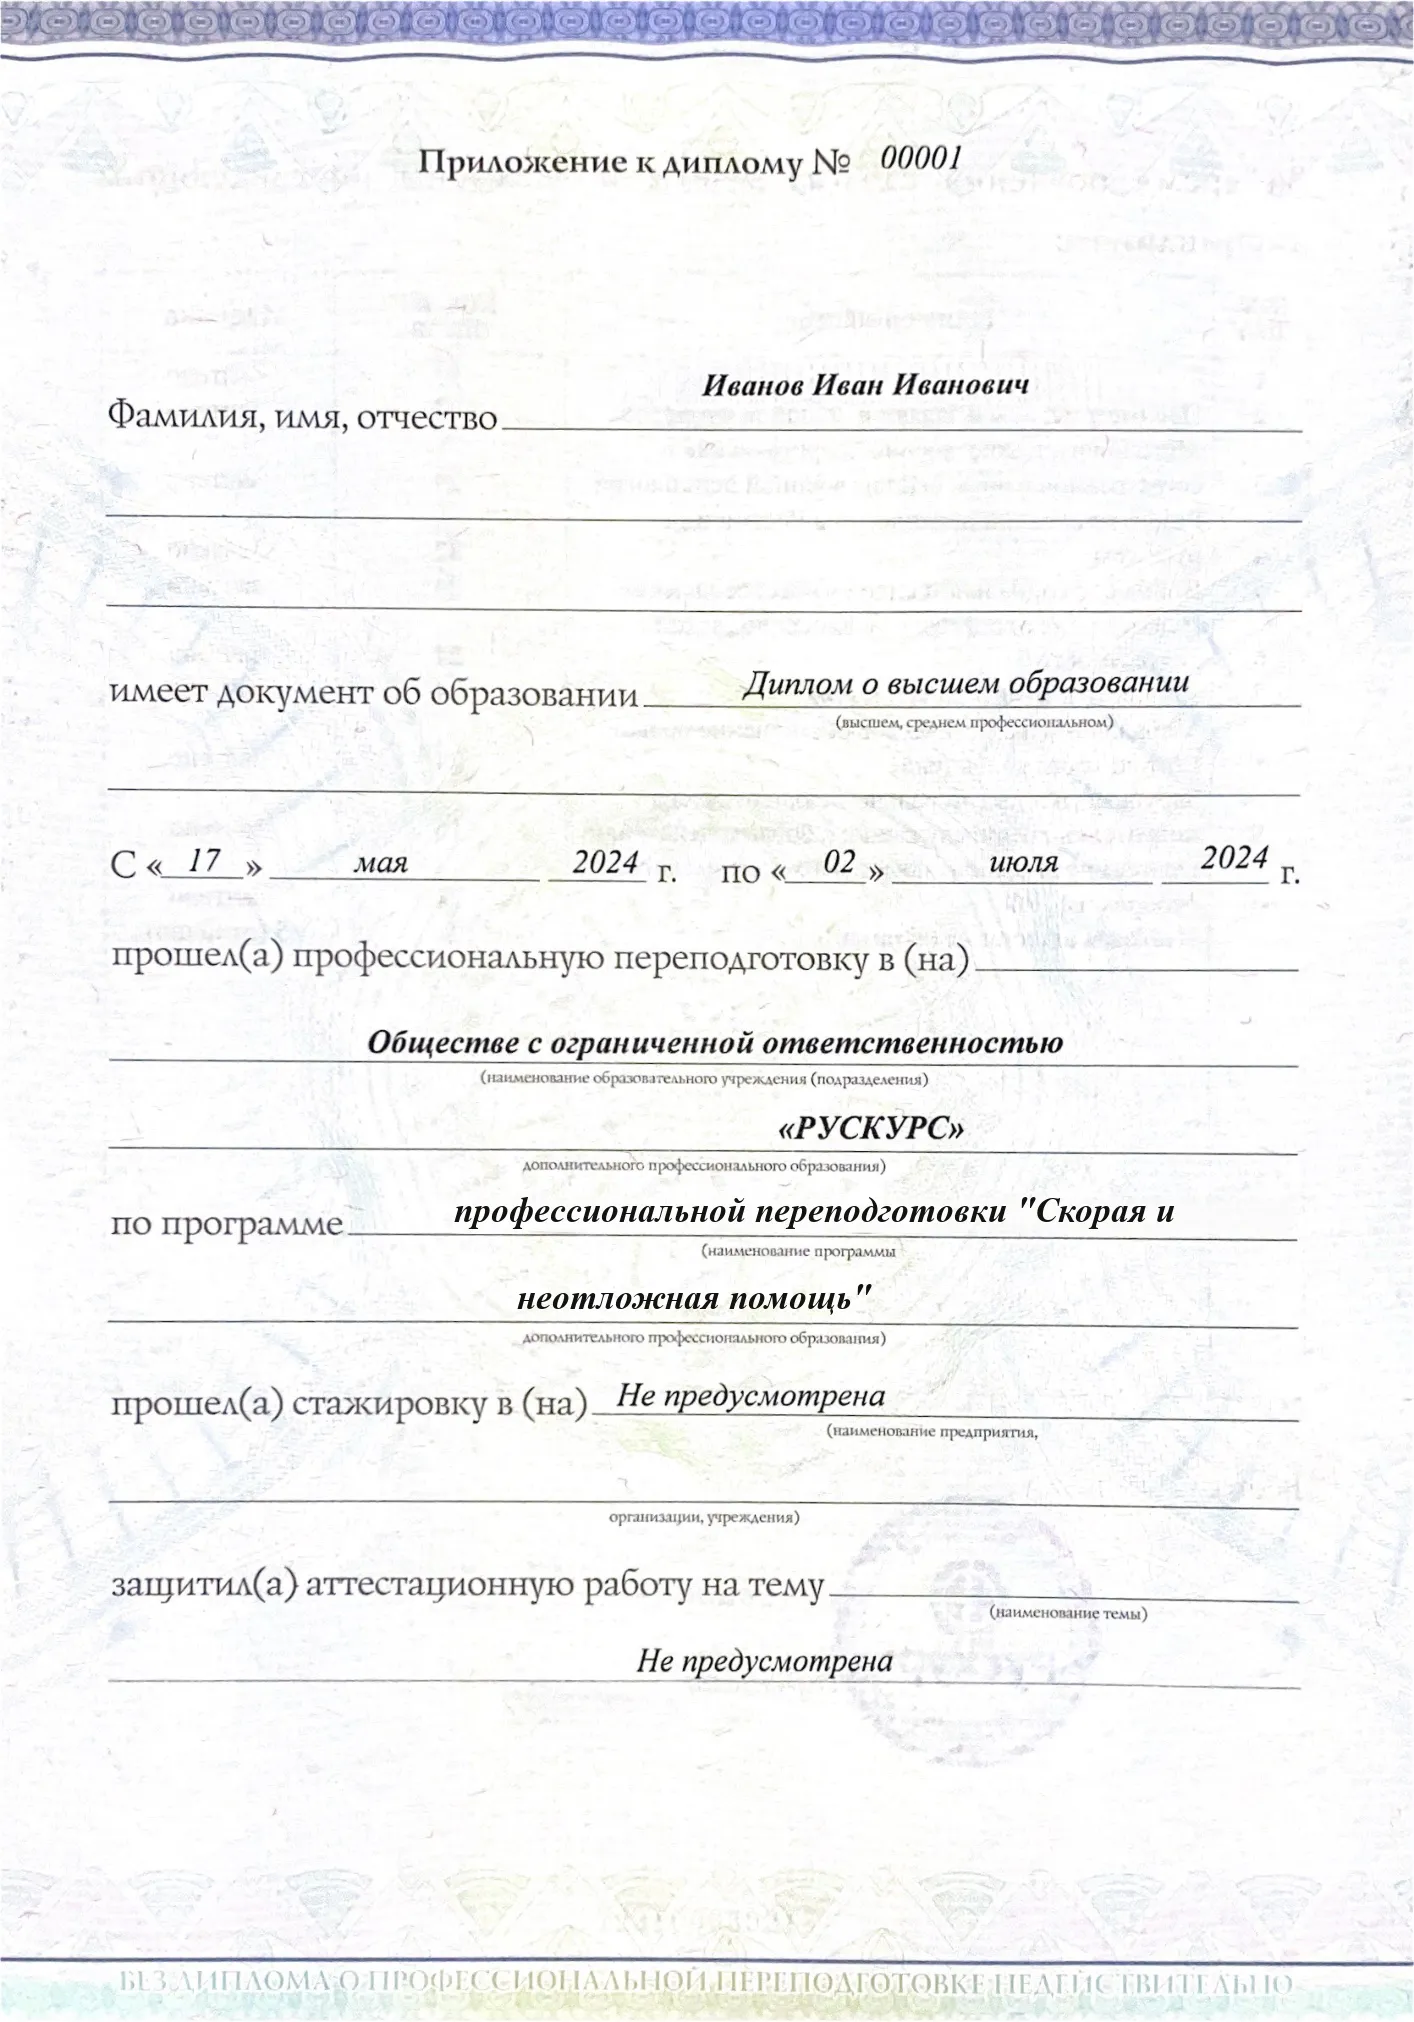 Приложение к диплому № 00001
Иванов Иван Иванович
Фамилия, имя, отчество
имеет документ об образовании Диплом о высшем образовании
(высшем, среднем профессиональном)
С « 17 » мая 2024 г. по « 02 » июля 2024 г.
прошел(а) профессиональную переподготовку в (на)
Обществе с ограниченной ответственностью
(наименование образовательного учреждения (подразделения)
«РУСКУРС»
дополнительного профессионального образования)
по программе профессиональной переподготовки "Скорая и
(наименование программы
неотложная помощь"
дополнительного профессионального образования)
прошел(а) стажировку в (на) Не предусмотрена
(наименование предприятия,
организации, учреждения)
защитил(а) аттестационную работу на тему
(наименование темы)
Не предусмотрена
БЕЗ ДИПЛОМА О ПРОФЕССИОНАЛЬНОЙ ПЕРЕПОДГОТОВКЕ НЕДЕЙСТВИТЕЛЬНО